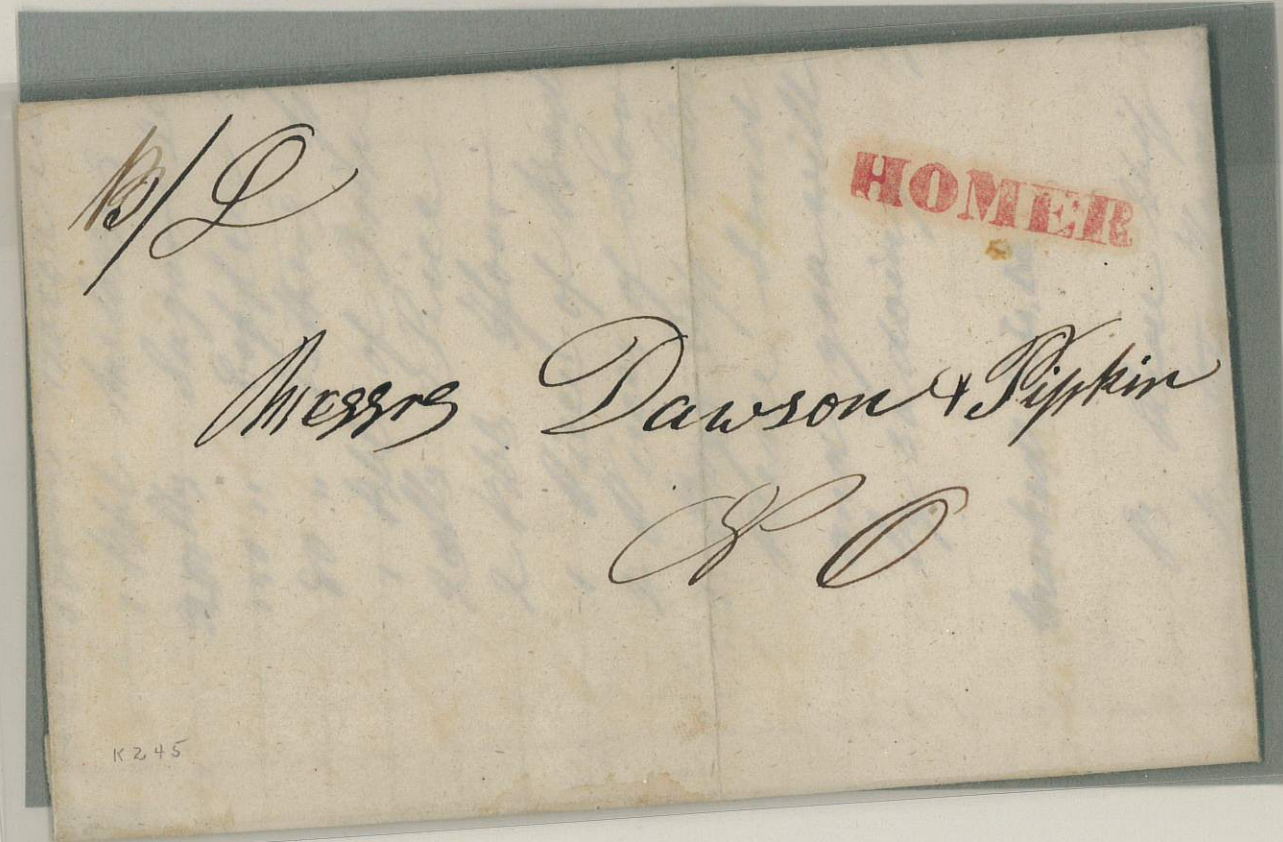 B/L
HOMER
Messrs Dawson & Pipkin
N O
K245